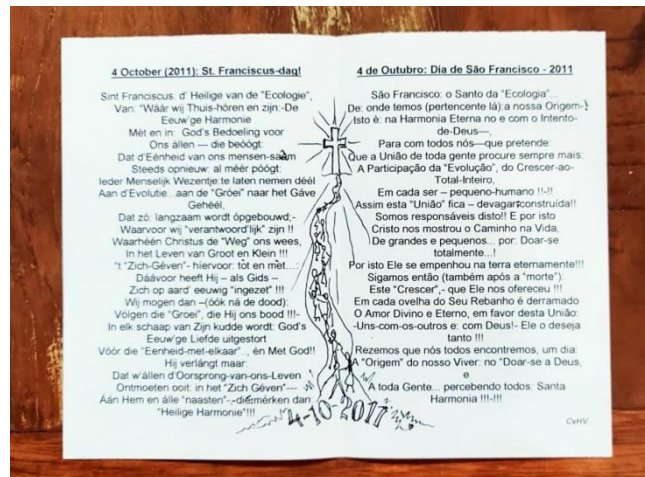 4 October (2011): St. Franciscus-dag!
Sint Franciscus: d' Heilige van de "Ecologie",
Van: "Wáár wij Thuis-hóren en zijn:-De
Eeuw'ge Harmonie
Mèt en in: God's Bedoeling voor
Ons àllen --- die beóógt:
Dat d'Eénheid van ons mensen-saam
Steeds opnieuw: al méér póógt:
Ieder Menselijk Wezentje te laten nemen déél
Aan d'Evolutie...aan de "Gróei" naar het Gáve
Gehéél,
Dat zó: langzaam wordt ópgebouwd;-
Waarvoor wij "verantwoord'lijk" zijn !!
Waarhéén Christus de "Weg" ons wees,
In het Leven van Groot en Klein !!!
"t "Zich-Géven"- hiervoor: tót en mét...:
Dáávoor heeft Hij – als Gids –
Zich op aard' eeuwig "ingezet" !!!
Wij mogen dan –(óók ná de dood):
Vólgen die "Groei", die Hij ons bood !!!-
In elk schaap van Zijn kudde wordt: God's
Eeuw'ge Liefde uitgestort
Vóór die "Eenheid-met-elkaar"... èn Met God!!
Hij verlángt maar:
Dat w'àllen d'Oorsprong-van-ons-Leven
Ontmoeten ooit: in het "Zich Géven"---
Áán Hem en álle "naasten"-,-die merken dan:
"Heilige Harmonie"!!!
4 de Outubro: Dia de São Francisco - 2011
São Francisco: o Santo da "Ecologia"...
De: onde temos (pertencente lá):a nossa Origem-}
Isto è: na Harmonia Eterna no e com o Intento-
de-Deus---,
Para com todos nós---que pretende:
Que a União de toda gente procure sempre mais:
A Participação da "Evolução", do Crescer-ao-
Total-Inteiro,
Em cada ser – pequeno-humano !!-!!
Assim esta "União" fica – devagar:construída!!
Somos responsáveis disto!! E por isto
Cristo nos mostrou o Caminho na Vida,
De grandes e pequenos... por: Doar-se
totalmente...!
Por isto Ele se empenhou na terra eternamente!!!
Sigamos então (também após a "morte"):
Este "Crescer",- que Ele nos ofereceu !!!
Em cada ovelha do Seu Rebanho é derramado
O Amor Divino e Eterno-, em favor desta União:
-Uns-com-os-outros e: com Deus!- Ele o deseja
tanto !!!
Rezemos que nós todos encontremos, um dia:
A "Origem" do nosso Viver: no "Doar-se a Deus,
e
A toda Gente... percebendo todos: Santa
Harmonia !!!-!!!
4-10-2011
CvHV